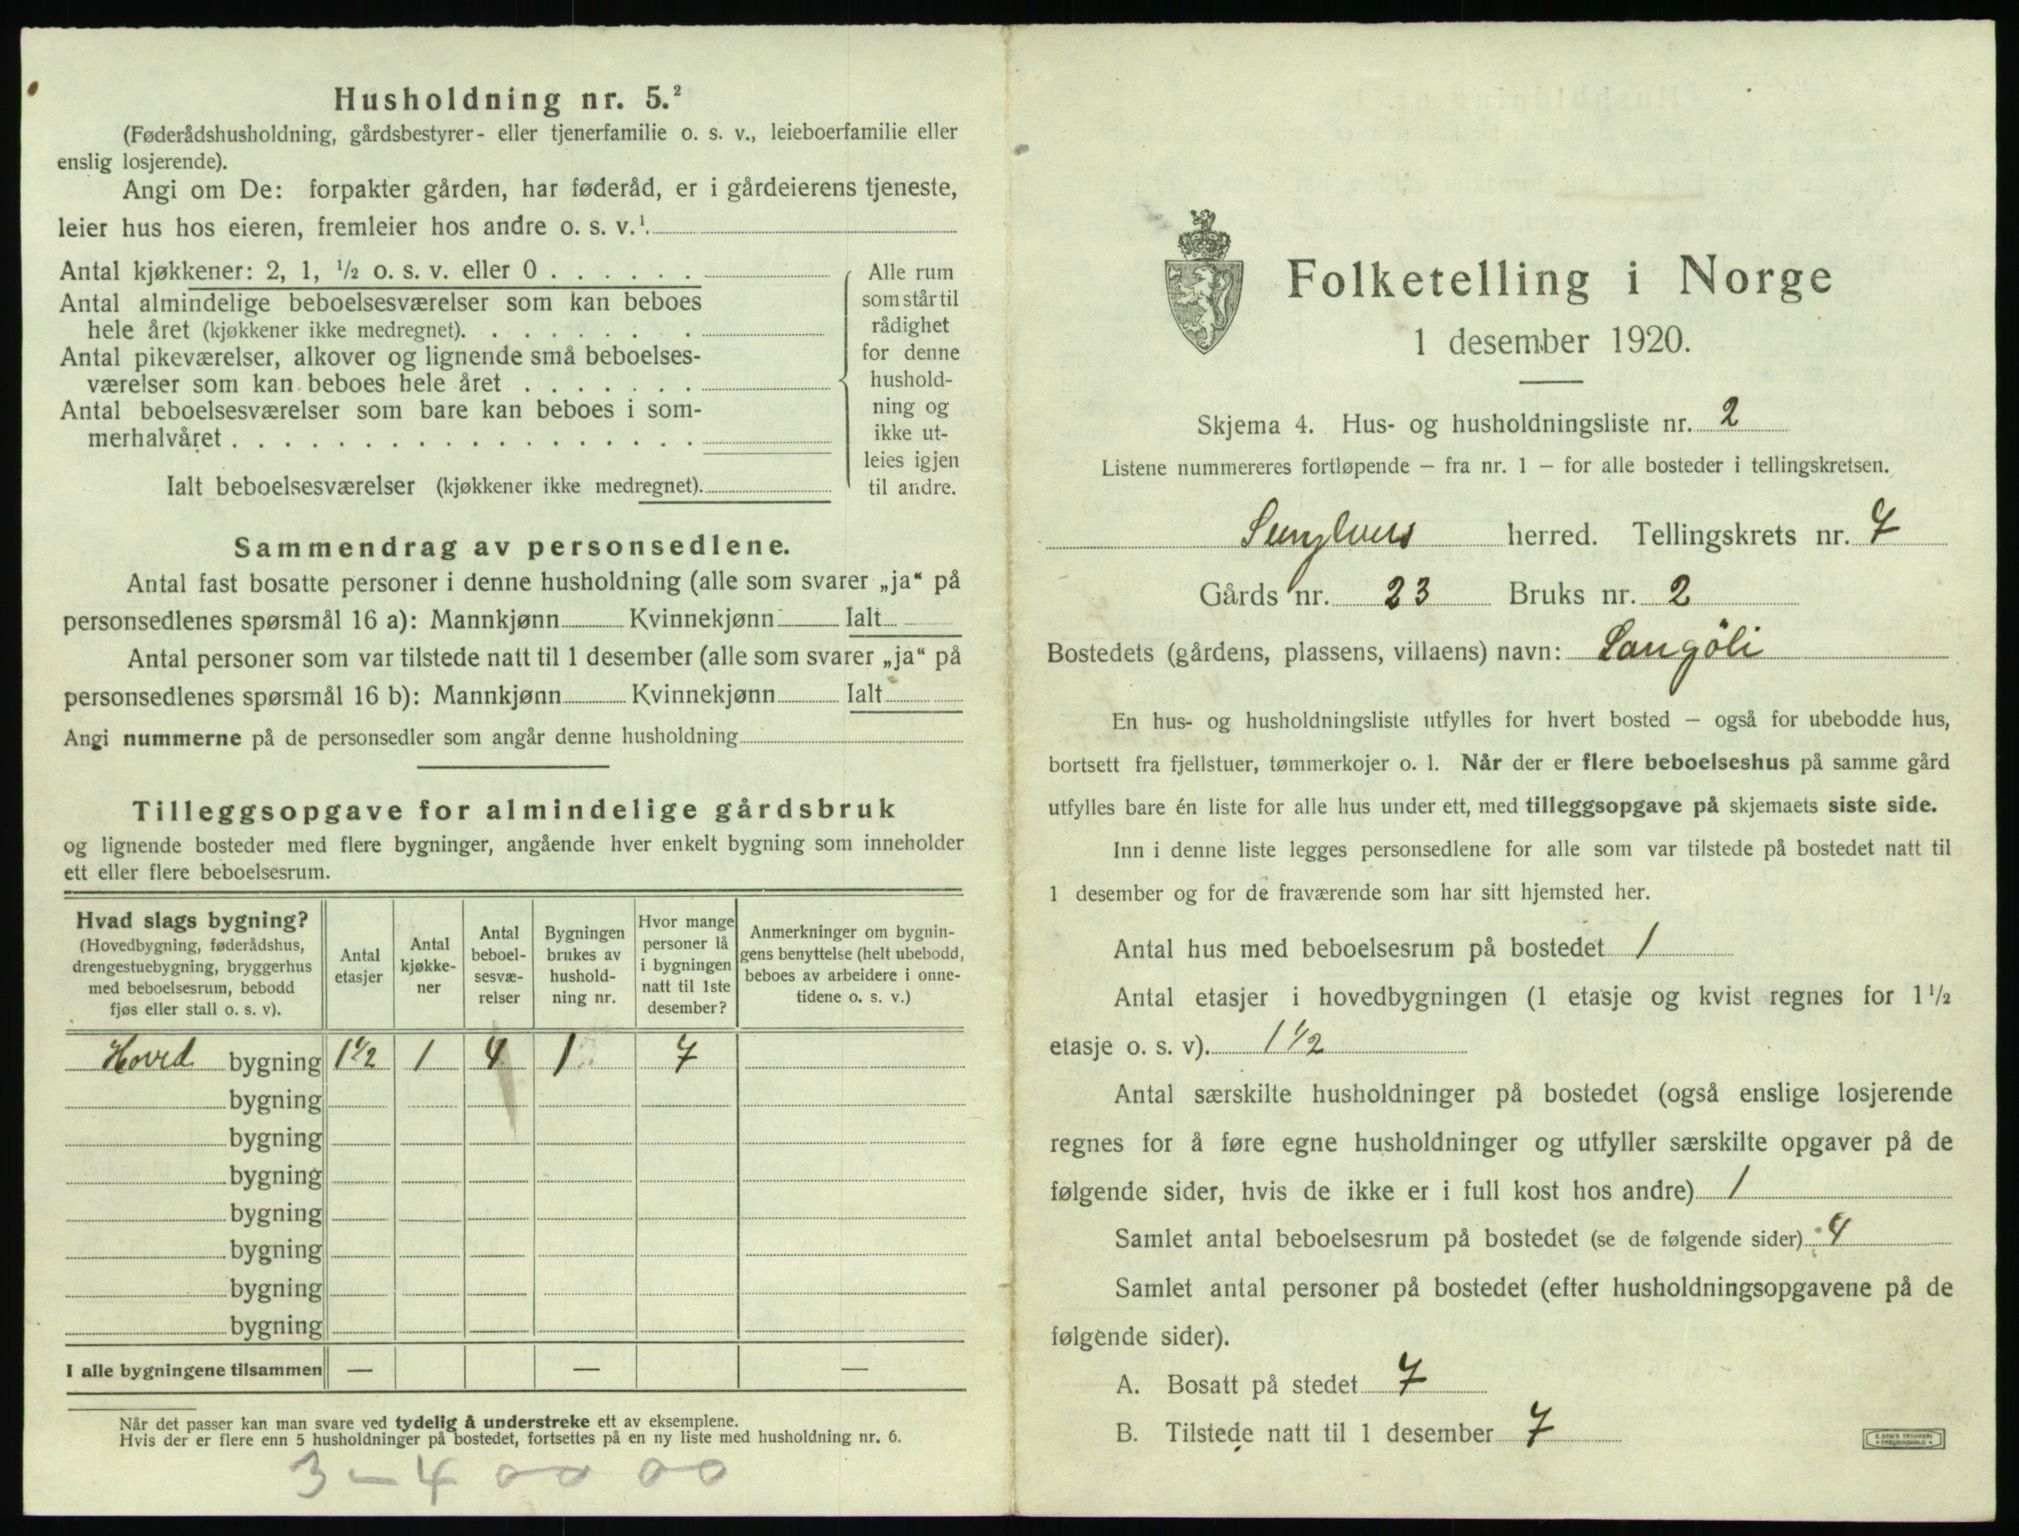 Husholdning nr. 5.²
(Føderådshusholdning, gårdsbestyrer- eller tjenerfamilie o. s. v., leieboerfamilie eller
enslig losjerende).
Angi om De: forpakter gården, har føderåd, er i gårdeierens tjeneste,
leier hus hos eieren, fremleier hos andre o. s. v.¹
Antal kjøkkener: 2, 1, ½ o. s. v. eller 0 . . . . . .
Antal almindelige beboelsesværelser som kan beboes
hele året (kjøkkener ikke medregnet). . . . . . . .
Antal pikeværelser, alkover og lignende små beboelses-
værelser som kan beboes hele året . . . . . . .
Antal beboelsesværelser som bare kan beboes i som-
merhalvåret . . . . . . . . . . . . . . . . . .
Ialt beboelsesværelser (kjøkkener ikke medregnet).
Alle rum
som står til
rådighet
for denne
hushold-
ning og
ikke ut-
leies igjen
til andre.
Sammendrag av personsedlene.
Antal fast bosatte personer i denne husholdning (alle som svarer „ja“ på
personsedlenes spørsmål 16 a): Mannkjønn Kvinnekjønn Ialt
Antal personer som var tilstede natt til 1 desember (alle som svarer „ja“ på
personsedlenes spørsmål 16 b): Mannkjønn Kvinnekjønn Ialt
Angi nummerne på de personsedler som angår denne husholdning
Tilleggsopgave for almindelige gårdsbruk
og lignende bosteder med flere bygninger, angående hver enkelt bygning som inneholder
ett eller flere beboelsesrum.
Hvad slags bygning?
(Hovedbygning, føderådshus,
drengestuebygning, bryggerhus
med beboelsesrum, bebodd
fjøs eller stall o. s. v).
Antal
etasjer
Antal
kjøkke-
ner
Antal
beboel-
sesvæ-
relser
Bygningen
brukes av
hushold-
ning nr.
Hvor mange
personer lå
i bygningen
natt til 1ste
desember?
Anmerkninger om bygnin-
gens benyttelse (helt ubebodd,
beboes av arbeidere i onne-
tidene o. s. v.)
Hoved bygning 1½ 1 4 1 7
bygning
bygning
bygning
bygning
bygning
bygning
bygning
I alle bygningene tilsammen — — —
Når det passer kan man svare ved tydelig å understreke ett av eksemplene.
Hvis der er flere enn 5 husholdninger på bostedet, fortsettes på en ny liste med husholdning nr. 6.
3 – 4 00 00
Folketelling i Norge
1 desember 1920.
Skjema 4. Hus- og husholdningsliste nr. 2
Listene nummereres fortløpende – fra nr. 1 – for alle bosteder i tellingskretsen.
herred. Tellingskrets nr. 7
Gårds nr. 23 Bruks nr. 2
Bostedets (gårdens, plassens, villaens) navn: Langöli
En hus- og husholdningsliste utfylles for hvert bosted – også for ubebodde hus,
bortsett fra fjellstuer, tømmerkojer o. l. Når der er flere beboelseshus på samme gård
utfylles bare én liste for alle hus under ett, med tilleggsopgave på skjemaets siste side.
Inn i denne liste legges personsedlene for alle som var tilstede på bostedet natt til
1 desember og for de fraværende som har sitt hjemsted her.
Antal hus med beboelsesrum på bostedet 1
Antal etasjer i hovedbygningen (1 etasje og kvist regnes for 1½
etasje o. s. v). 1½
Antal særskilte husholdninger på bostedet (også enslige losjerende
regnes for å føre egne husholdninger og utfyller særskilte opgaver på de
følgende sider, hvis de ikke er i full kost hos andre) 1
Samlet antal beboelsesrum på bostedet (se de følgende sider) 4
Samlet antal personer på bostedet (efter husholdningsopgavene på de
følgende sider).
A. Bosatt på stedet 7
B. Tilstede natt til 1 desember 7